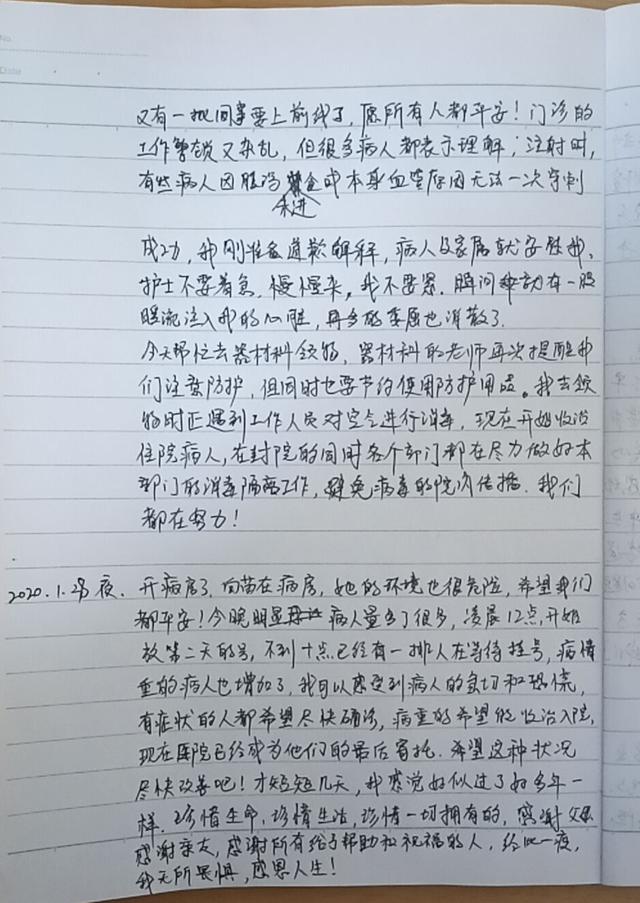 No.
Date
又有一批同事要上前线了，愿所有人都平安！门诊的
工作繁琐又杂乱，但很多病人都表示理解；注射时，
有些病人因肢冷 或本身血管原因无法一次穿刺
成功，我刚准备道歉解释，病人及家属就安慰我、
护士不要着急，慢慢来，我不要紧．瞬间 有一股
暖流注入我的心脏，再多的委屈也消散了．
今天帮忙去器材科领物，器材科的老师再次提醒我
们注意防护，但同时也要节约使用防护用品。我去领
物时正遇到工作人员对空气进行消毒，现在开始收治
住院病人，在封院的同时各个部门都在尽力做好本
部门的消毒隔离工作，避免病毒的院内传播．我们
都在努力！
2020.1. 夜．开病房了，向苗在病房，她的环境也很危险，希望我们
都平安！今晚明显 病人量多了很多，凌晨12点开始
放第二天的号，不到十点已经有一排人在等待挂号，病情
重的病人也增加了，我可以感受到病人的急切和恐慌，
有症状的人都希望尽快确诊，病重的希望能收治入院，
现在医院已经成为他们的最后寄托．希望这种状况
尽快改善吧！才短短几天，我感觉好似过了好多年一
样．珍惜生命，珍惜生活，珍惜一切拥有的，感谢父母
感谢亲友，感谢所有给予帮助和祝福的人，给 一夜，
我无所畏惧，感恩人生！